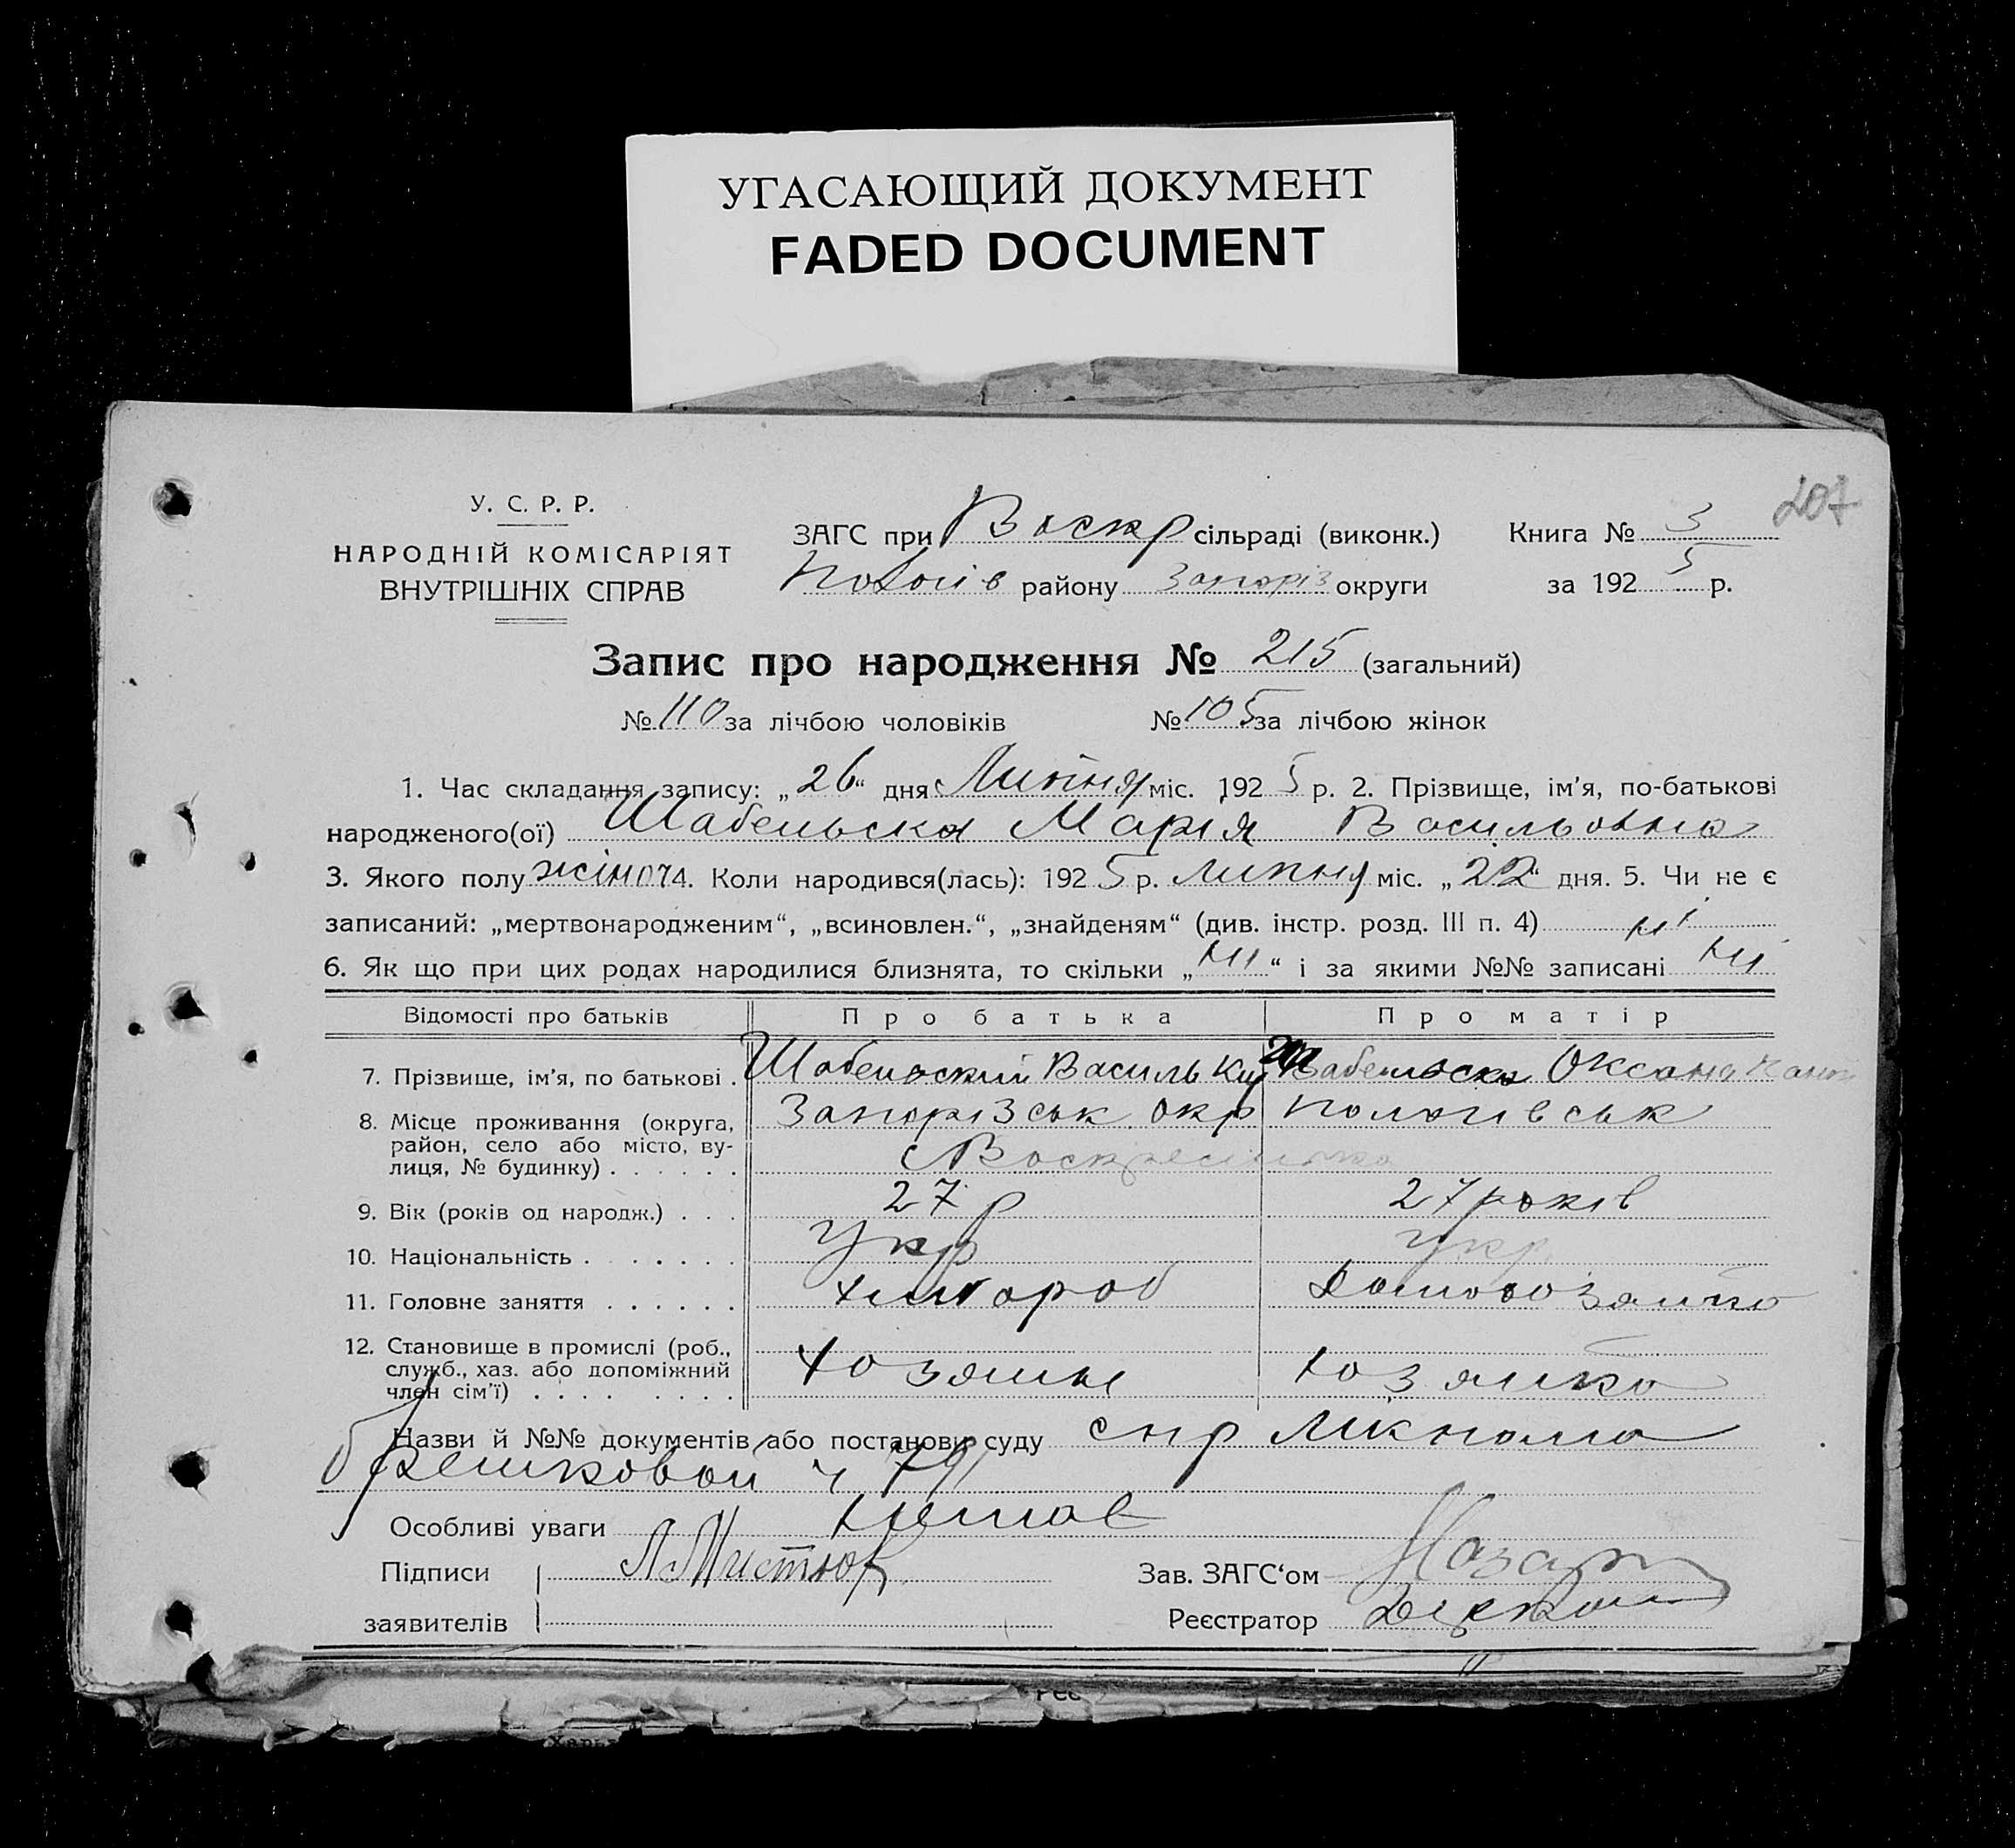 УГАСАЮЩИЙ ДОКУМЕНТ
FADED DOCUMENT
207
У. С. Р. Р.
НАРОДНІЙ КОМІСАРІЯТ
ВНУТРІШНІХ СПРАВ
ЗАГС при Воскр сільраді (виконк.) Книга № 3
Пологів району Запоріз округи за 1925 р.
Запис про народження № 215 (загальний)
№ 110 за лічбою чоловіків № 105 за лічбою жінок
1. Час складання запису: „26“ дня Липня міс. 1925 р. 2. Прізвище, ім’я, по-батькові
народженого(ої) Шабельска Марія Васильовна
3. Якого полу жіноч 4. Коли народився(лась): 1925 р. липня міс. „22“ дня. 5. Чи не є
записаний: „мертвонародженим“, „всиновлен.“, „знайденям“ (див. інстр. розд. III п. 4) ні
6. Як що при цих родах народилися близнята, то скільки „ні“ і за якими №№ записані ні
Відомості про батьків Про батька Про матір
7. Прізвище, ім’я, по батькові . Шабельский Василь Шабельска Оксана
8. Місце проживання (округа, Запорізськ окр Пологівськ
район, село або місто, ву-
лиця, № будинку) . . . . . . с Воскресінка
9. Вік (років од народж.) . . . 27 р 27 років
10. Національність . . . . . . . Укр Укр
11. Головне заняття . . . . . . хлібороб Домохозяйка
12. Становище в промислі (роб.,
служб., хаз. або допоміжний хозяин хозяйка
член сім’ї) . . . . . . . . .
Назви й №№ документів або постанови суду спр
ч 791
Особливі уваги немає
Підписи Зав. ЗАГС‘ом
заявителів Реєстратор